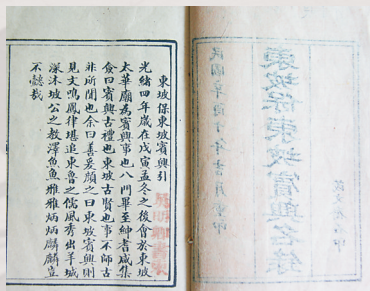 東坡保東坡賓興引
光緒四年歲在戊寅孟冬之後會於東坡
太華廟為賓興事也八門畢至紳耆咸集
僉曰賓興古禮也東坡古賢也事不師古
非所聞也余曰善爰顏之曰東坡賓興則
見文鳴鳳律堪追東魯之儒風秀出羊城
深沐坡公之教澤魚魚雅雅炳炳麟麟豈
不懿哉
東坡保東坡賓興名錄